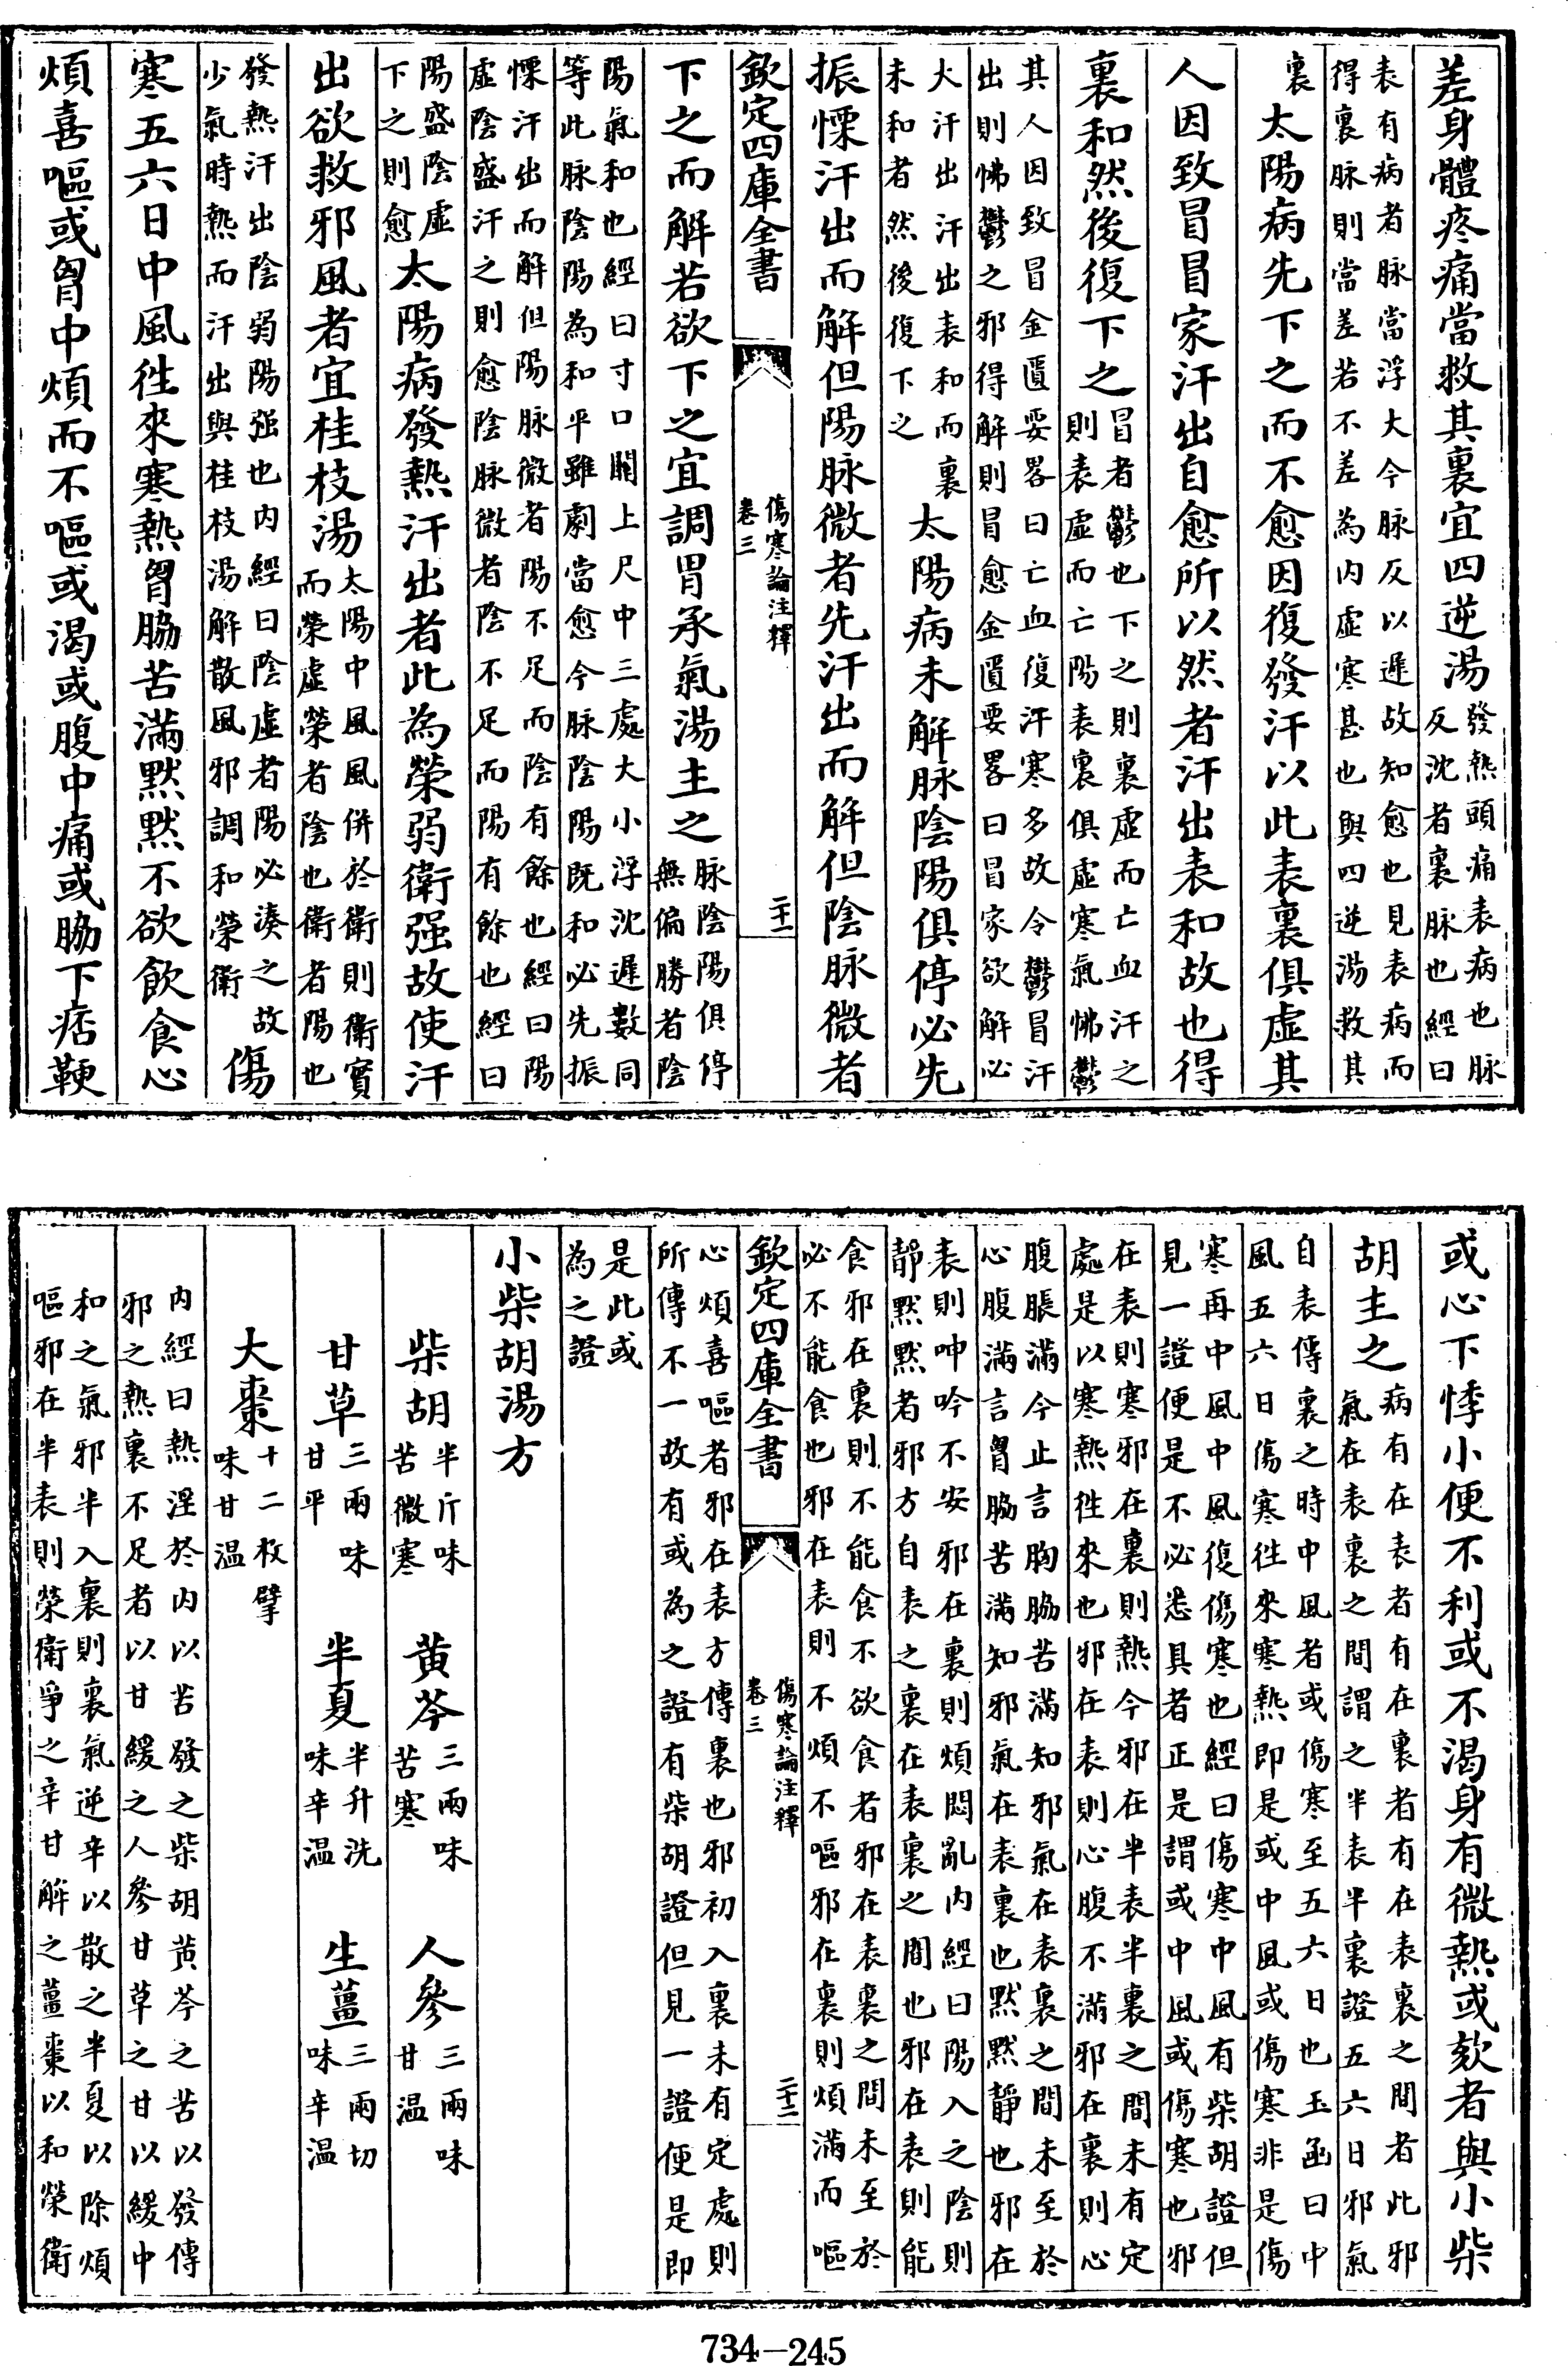 差身體疼痛當救其裏宜四逆湯發熱頭痛表病也脉
反沈者裏脉也經曰
表有病者脉當浮大今脉反以遲故知愈也見表病而
得裏脉則當差若不差為内虛寒甚也與四逆湯救其
裏太陽病先下之而不愈因復發汗以此表裏俱虛其
人因致冒冒家汗出自愈所以然者汗出表和故也得
裏和然後復下之冒者鬱也下之則裏虛而亡血汗之
則表虛而亡陽表裏俱虛寒氣怫鬱
其人因致冒金匱要畧曰亡血復汗寒多故令鬱冒汗
出則怫鬱之邪得解則冒愈金匱要畧曰冒家欲解必
大汗出汗出表和而裏
未和者然後復下之
太陽病未解脉陰陽俱停必先
振慄汗出而解但陽脉微者先汗出而解但陰脉微者
欽定四庫全書
傷寒論注釋
卷三
二十一
下之而解若欲下之宜調胃承氣湯主之脉陰陽俱停
無偏勝者陰
陽氣和也經曰寸口關上尺中三處大小浮沈遲數同
等此脉陰陽為和平雖劇當愈今脉陰陽既和必先振
慄汗出而解但陽脉微者陽不足而陰有餘也經曰陽
虛陰盛汗之則愈陰脉微者陰不足而陽有餘也經曰
陽盛陰虛
下之則愈
太陽病發熱汗出者此為榮弱衛强故使汗
出欲救邪風者宜桂枝湯太陽中風風併於衛則衛實
而榮虛榮者陰也衛者陽也
發熱汗出陰弱陽强也内經曰陰虛者陽必湊之故
少氣時熱而汗出與桂枝湯解散風邪調和榮衛
傷
寒五六日中風徃來寒熱胷脇苦滿黙黙不欲飲食心
煩喜嘔或胷中煩而不嘔或渴或腹中痛或脇下痞鞕
或心下悸小便不利或不渴身有微熱或欬者與小柴
胡主之病有在表者有在裏者有在表裏之間者此邪
氣在表裏之間謂之半表半裏證五六日邪氣
自表傳裏之時中風者或傷寒至五六日也玉函曰中
風五六日傷寒徃來寒熱即是或中風或傷寒非是傷
寒再中風中風復傷寒也經曰傷寒中風有柴胡證但
見一證便是不必悉具者正是謂或中風或傷寒也邪
在表則寒邪在裏則熱今邪在半表半裏之間未有定
處是以寒熱徃來也邪在表則心腹不滿邪在裏則心
腹脹滿今止言胸脇苦滿知邪氣在表裏之間未至於
心腹滿言胷脇苦滿知邪氣在表裏也黙黙靜也邪在
表則呻吟不安邪在裏則煩悶亂内經曰陽入之陰則
靜黙黙者邪方自表之裏在表裏之間也邪在表則能
食邪在裏則不能食不欲食者邪在表裏之間未至於
必不能食也邪在表則不煩不嘔邪在裏則煩滿而嘔
欽定四庫全書
傷寒論注釋
卷三
二十二
心煩喜嘔者邪在表方傳裏也邪初入裏未有定處則
所傳不一故有或為之證有柴胡證但見一證便是即
是此或
為之證
小柴胡湯方
柴胡半斤味
苦微寒
黄芩三兩味
苦寒
人參三兩味
甘温
甘草三兩味
甘平
半夏半升洗
味辛温
生薑三兩切
味辛温
大棗十二枚擘
味甘温
内經曰熱淫於内以苦發之柴胡黄芩之苦以發傳
邪之熱裏不足者以甘緩之人參甘草之甘以緩中
和之氣邪半入裏則裏氣逆辛以散之半夏以除煩
嘔邪在半表則榮衛爭之辛甘解之薑棗以和榮衛
734-245